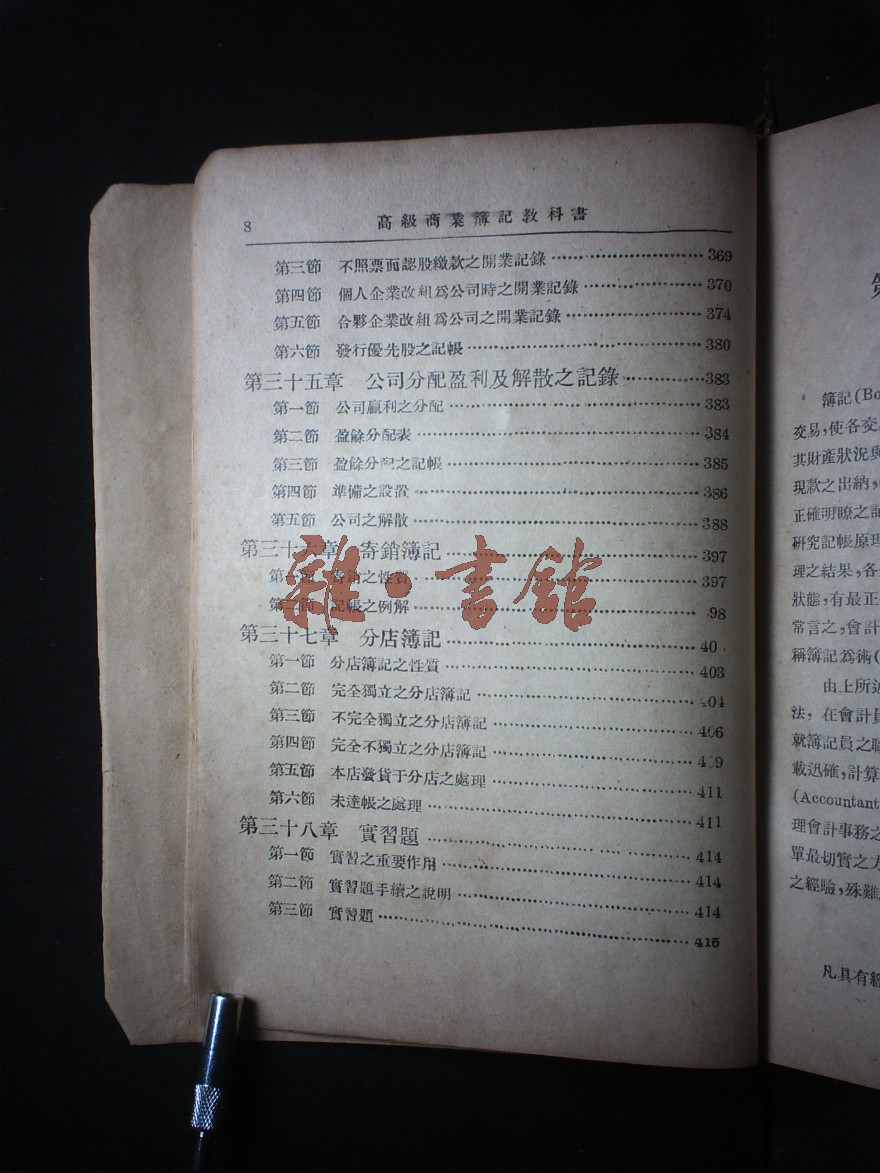 8 高級商業簿記教科書
第三節 不照票面認股繳款之開業記錄 369
第四節 個人企業改組爲公司時之開業記錄 370
第五節 合夥企業改組爲公司之開業記錄 374
第六節 發行優先股之記帳 380
第三十五章 公司分配盈利及解散之記錄 383
第一節 公司贏利之分配 383
第二節 盈餘分配表 384
第三節 盈餘分配之記帳 385
第四節 準備之設置 386
第五節 公司之解散 388
第三十六章 寄銷簿記 397
第一節 寄銷之性質 397
第二節 記帳之例解 98
雜·書館
第三十七章 分店簿記 40
第一節 分店簿記之性質 403
第二節 完全獨立之分店簿記 404
第三節 不完全獨立之分店簿記 406
第四節 完全不獨立之分店簿記 4 9
第五節 本店發貨于分店之處理 411
第六節 未達帳之處理 411
第三十八章 實習題 414
第一節 實習之重要作用 414
第二節 實習題手續之說明 414
第三節 實習題 415
簿記(Bo
交易,使各交
其財產狀況與
現款之出納,
正確明瞭之記
研究記帳原理
理之結果,各
狀態,有最正
常言之,會計
稱簿記爲術(
由上所述
法,在會計
就簿記員之職
載迅確,計算
(Accountant
理會計事務之
單最切實之方
之經驗,殊難
凡具有經